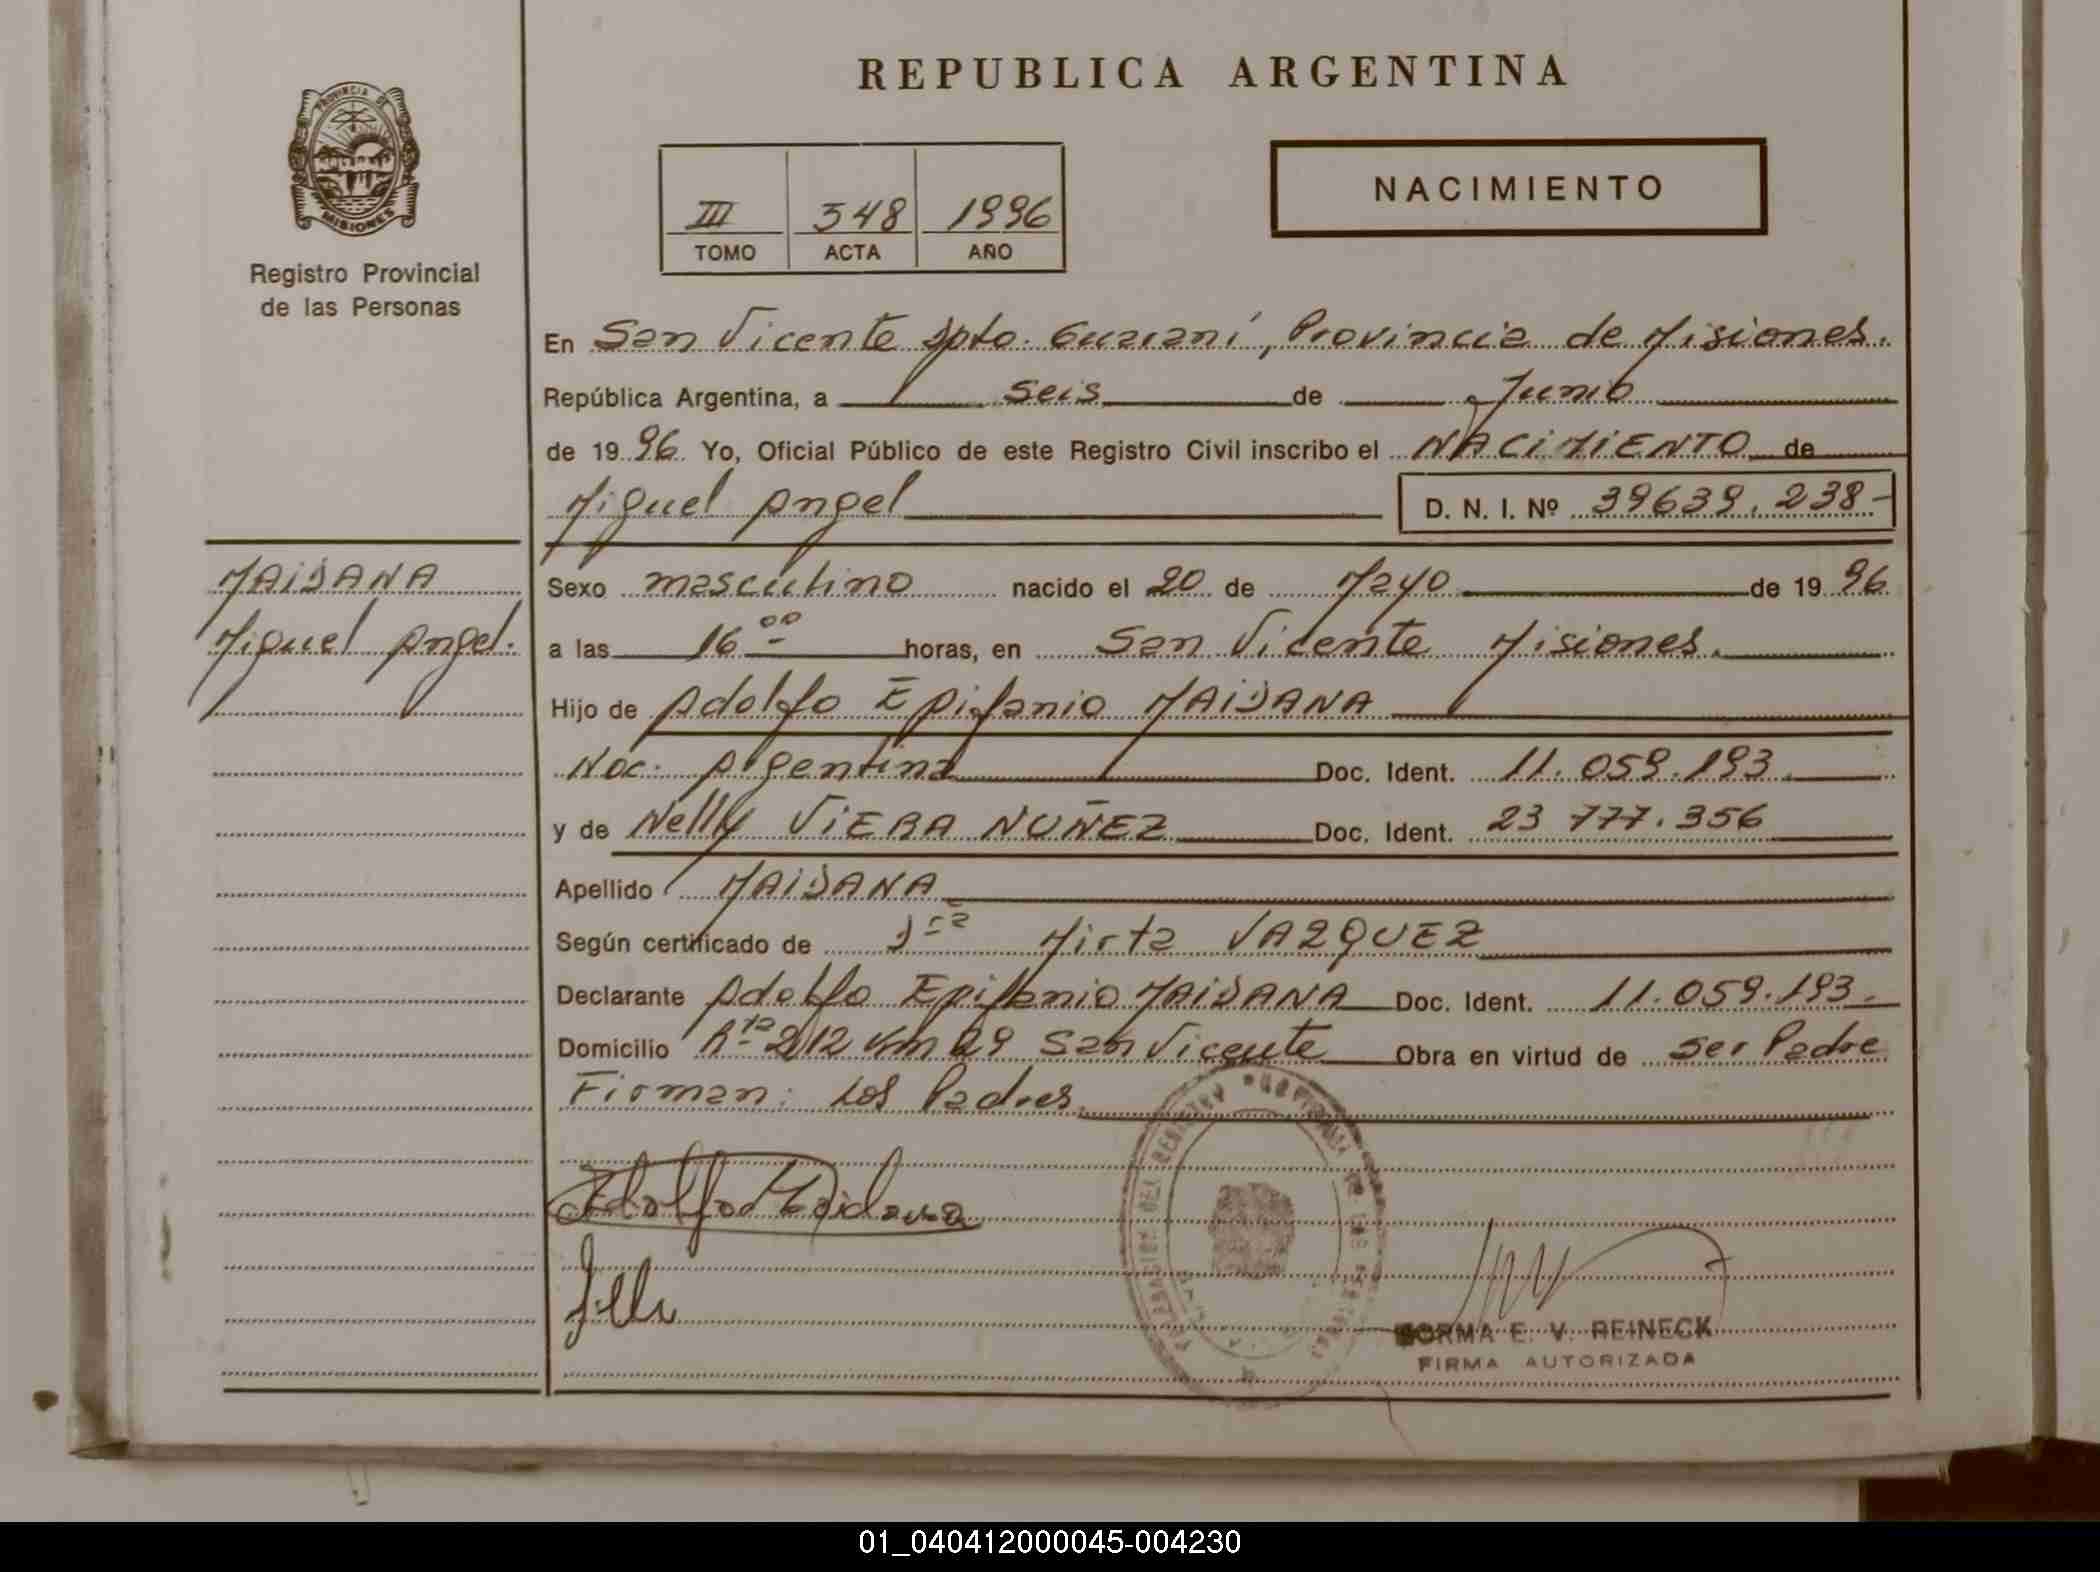 REPUBLICA ARGENTINA
PROVINCIA DE
MISIONES
Registro Provincial
de las Personas
III 548 1996
TOMO ACTA AÑO
NACIMIENTO
En San Vicente Dpto. Guaraní, Provincia de Misiones.
República Argentina, a seis de Junio
de 1996 Yo, Oficial Público de este Registro Civil inscribo el NACIMIENTO de
Miguel Angel D. N. I. Nº 39639.238-
MAIDANA
Miguel Angel.
Sexo masculino nacido el 20 de Mayo de 1996
a las 16 00 horas, en San Vicente Misiones.
Hijo de Adolfo Epifanio MAIDANA
Nac. Argentina Doc. Ident. 11.059.193.
y de Nelly VIERA NUÑEZ Doc. Ident. 23 777.356
Apellido MAIDANA
Según certificado de Dra Mirta VAZQUEZ
Declarante Adolfo Epifanio MAIDANA Doc. Ident. 11.059.193.
Domicilio Rta 212 Km 29 San Vicente Obra en virtud de ser Padre
Firman: Los Padres.
Adolfo Maidana
NORMA E. V. REINECK
FIRMA AUTORIZADA
01_040412000045-004230